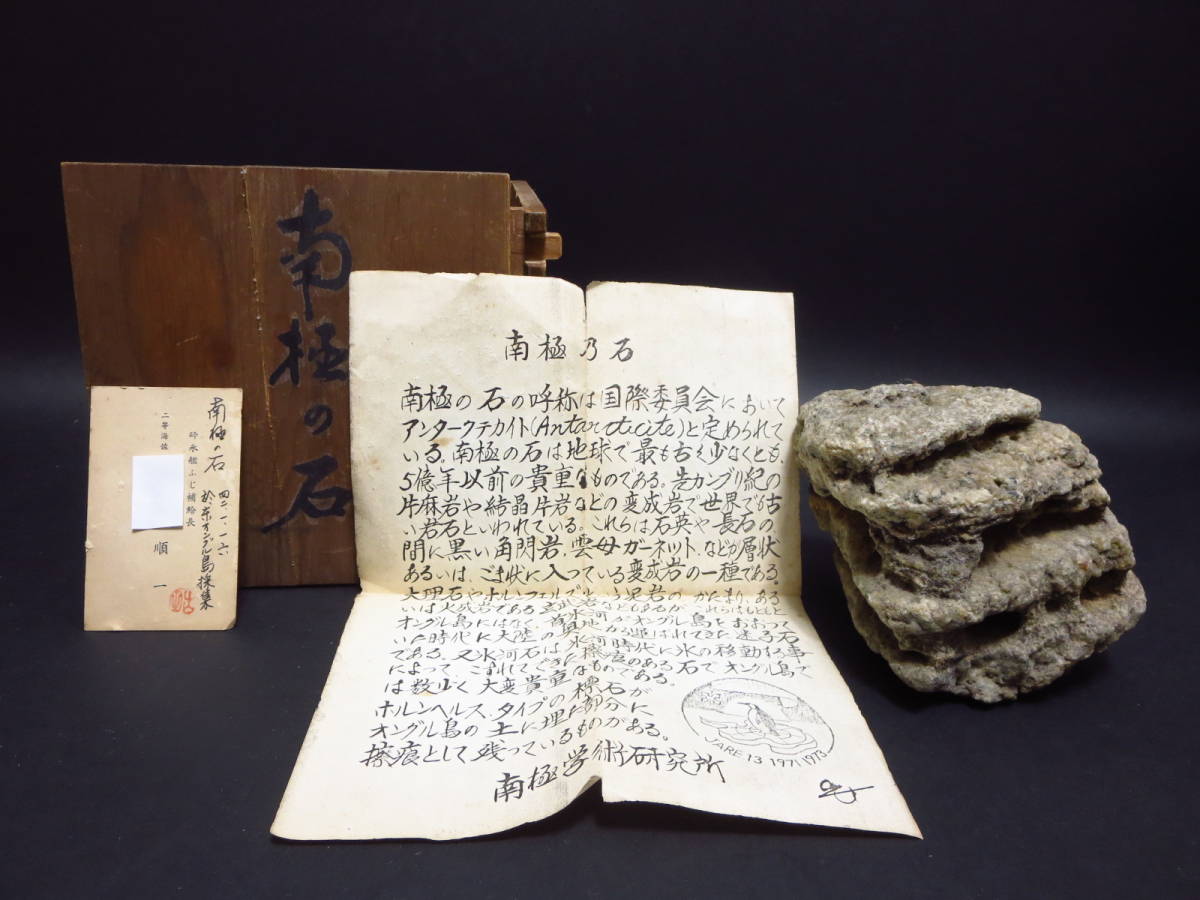 南極の石
南極の石
四二、一、一六、
於東オングル島採集
砕氷艦ふじ補給長
二等海佐
順一
南極乃石
南極の石の呼称は国際委員会において
アンタークテカイト(Antarctecite)と定められて
いる。南極の石は地球で最も古く少なくとも、
5億年以前の貴重なものである。先カンブリ紀の
片麻岩や結晶片岩などの変成岩で世界でも古
い岩石といわれている。これらは石英や長石の
間に黒い角閃岩、雲母ガーネット、などが層状
あるいは、ごま状に入っている変成岩の一種である。
大理石やホルンフェルス
いは火成岩である
オングル島にはなく
いた時代に大陸の奥地から運ばれてきた迷子石
である。又氷河石は氷河時代に氷の移動する事
によって
は数少く大変貴重なものである。
ホルンヘルス、タイプの標石が
オングル島の土に埋
擦痕として残っているものがある。
南極学術研究所
JARE 13 1971 1973